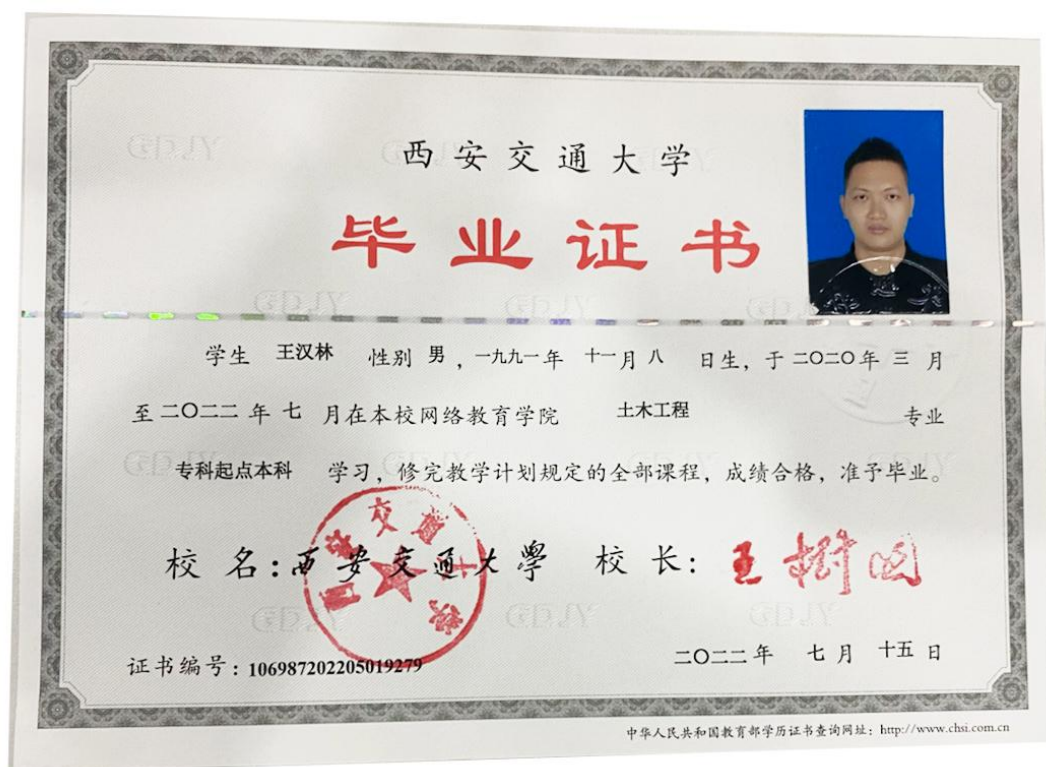 西安交通大学
毕业证书
学生 王汉林 性别 男，一九九一年 十一月 八 日生，于 二〇二〇年 三 月
至 二〇二二 年 七 月在本校网络教育学院 土木工程 专业
专科起点本科 学习，修完教学计划规定的全部课程，成绩合格，准予毕业。
校 名：西安交通大學 校 长：王树国
证书编号：106987202205019279
二〇二二年 七月 十五日
中华人民共和国教育部学历证书查询网址：http://www.chsi.com.cn